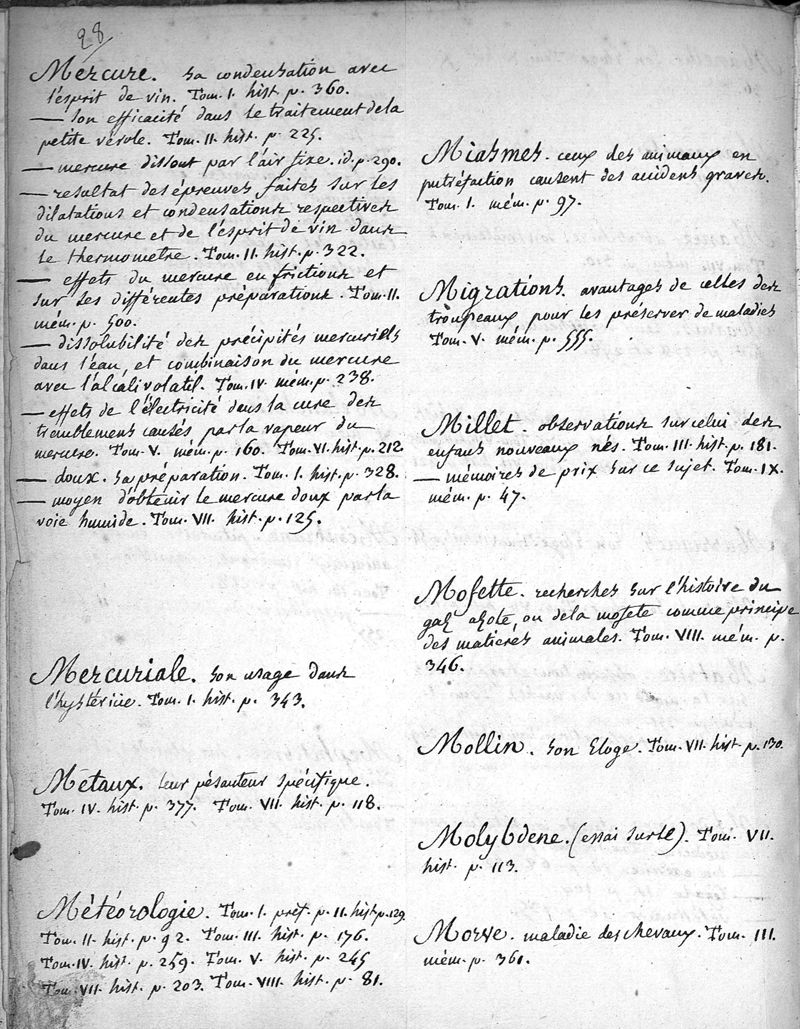 28
Mercure. sa condensation avec
l'esprit de vin. Tom. I. hist. p. 360.
— son efficacité dans le traitement de la
petite vérole. Tom. II. hist. p. 225.
— mercure dissout par l'air fixe. id. p. 290.
— resultat des épreuves faites sur les
dilatations et condensations respectives
du mercure et de l'esprit de vin dans
le thermometre. Tom. II. hist. p. 322.
— effets du mercure en frictions et
sur ses différentes préparations. Tom. II.
mém. p. 500.
— dissolubilité des précipités mercuriels
dans l'eau, et combinaison du mercure
avec l'alcali volatil. Tom. IV. mém. p. 238.
— effets de l'électricité dans la cure des
tremblemens causés par la vapeur du
mercure. Tom. V. mém. p. 160. Tom. VI. hist. p. 212.
— doux. sa préparation. Tom. I. hist. p. 328.
— moyen d'obtenir le mercure doux par la
voie humide. Tom. VII. hist. p. 125.
Mercuriale. son usage dans
l'hystéricie. Tom. I. hist. p. 343.
Métaux. leur pésanteur spécifique.
Tom. IV. hist. p. 377. Tom. VII. hist. p. 118.
Météorologie. Tom. I. préf. p. II. hist. p. 129.
Tom. II. hist. p. 92. Tom. III. hist. p. 176.
Tom. IV. hist. p. 259. Tom. V. hist. p. 245
Tom. VII. hist. p. 203. Tom. VIII. hist. p. 81.
Miasmes. ceux des animaux en
putréfaction causent des accidens graves.
Tom. I. mém. p. 97.
Migrations. avantages de celles des
troupeaux pour les préserver de maladies
Tom. V. mém. p. 555.
Millet. observations sur celui des
enfans nouveaux nés. Tom. III. hist. p. 181.
— mémoires de prix sur ce sujet. Tom. IX.
mém. p. 47.
Mofette. recherches sur l'histoire du
gaz azote, ou de la mofete comme principe
des matieres animales. Tom. VIII. mém. p.
346.
Mollin. son Eloge. Tom. VII. hist. p. 130.
Molybdene. (essai sur le). Tom. VII.
hist. p. 113.
Morve. maladie des chevaux. Tom. III.
mém. p. 361.